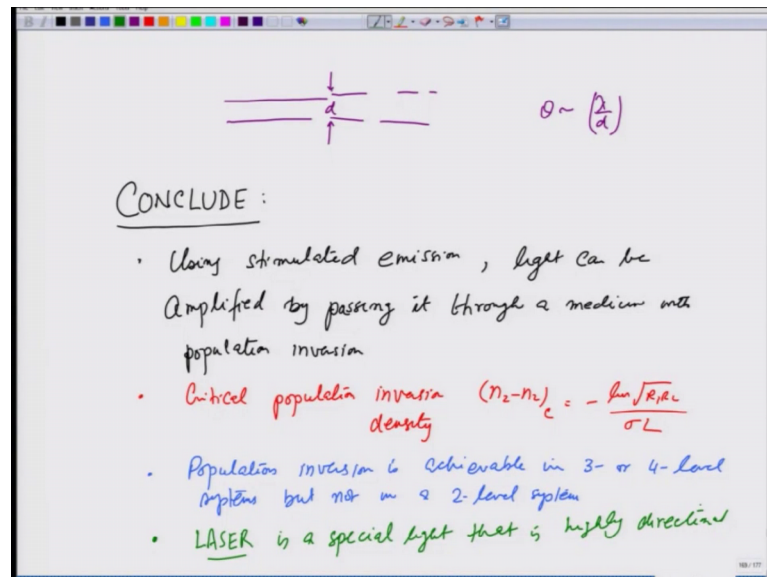 d
θ ~ (λ/d)
CONCLUDE :
· Using stimulated emission , light can be
amplified by passing it through a medium with
population inversion
· Critical population inversion (n₂-n₂)c = - ln √R₁R₂ / σL
density
· Population inversion is achievable in 3- or 4-level
systems but not in a 2-level system
· LASER is a special light that is highly directional